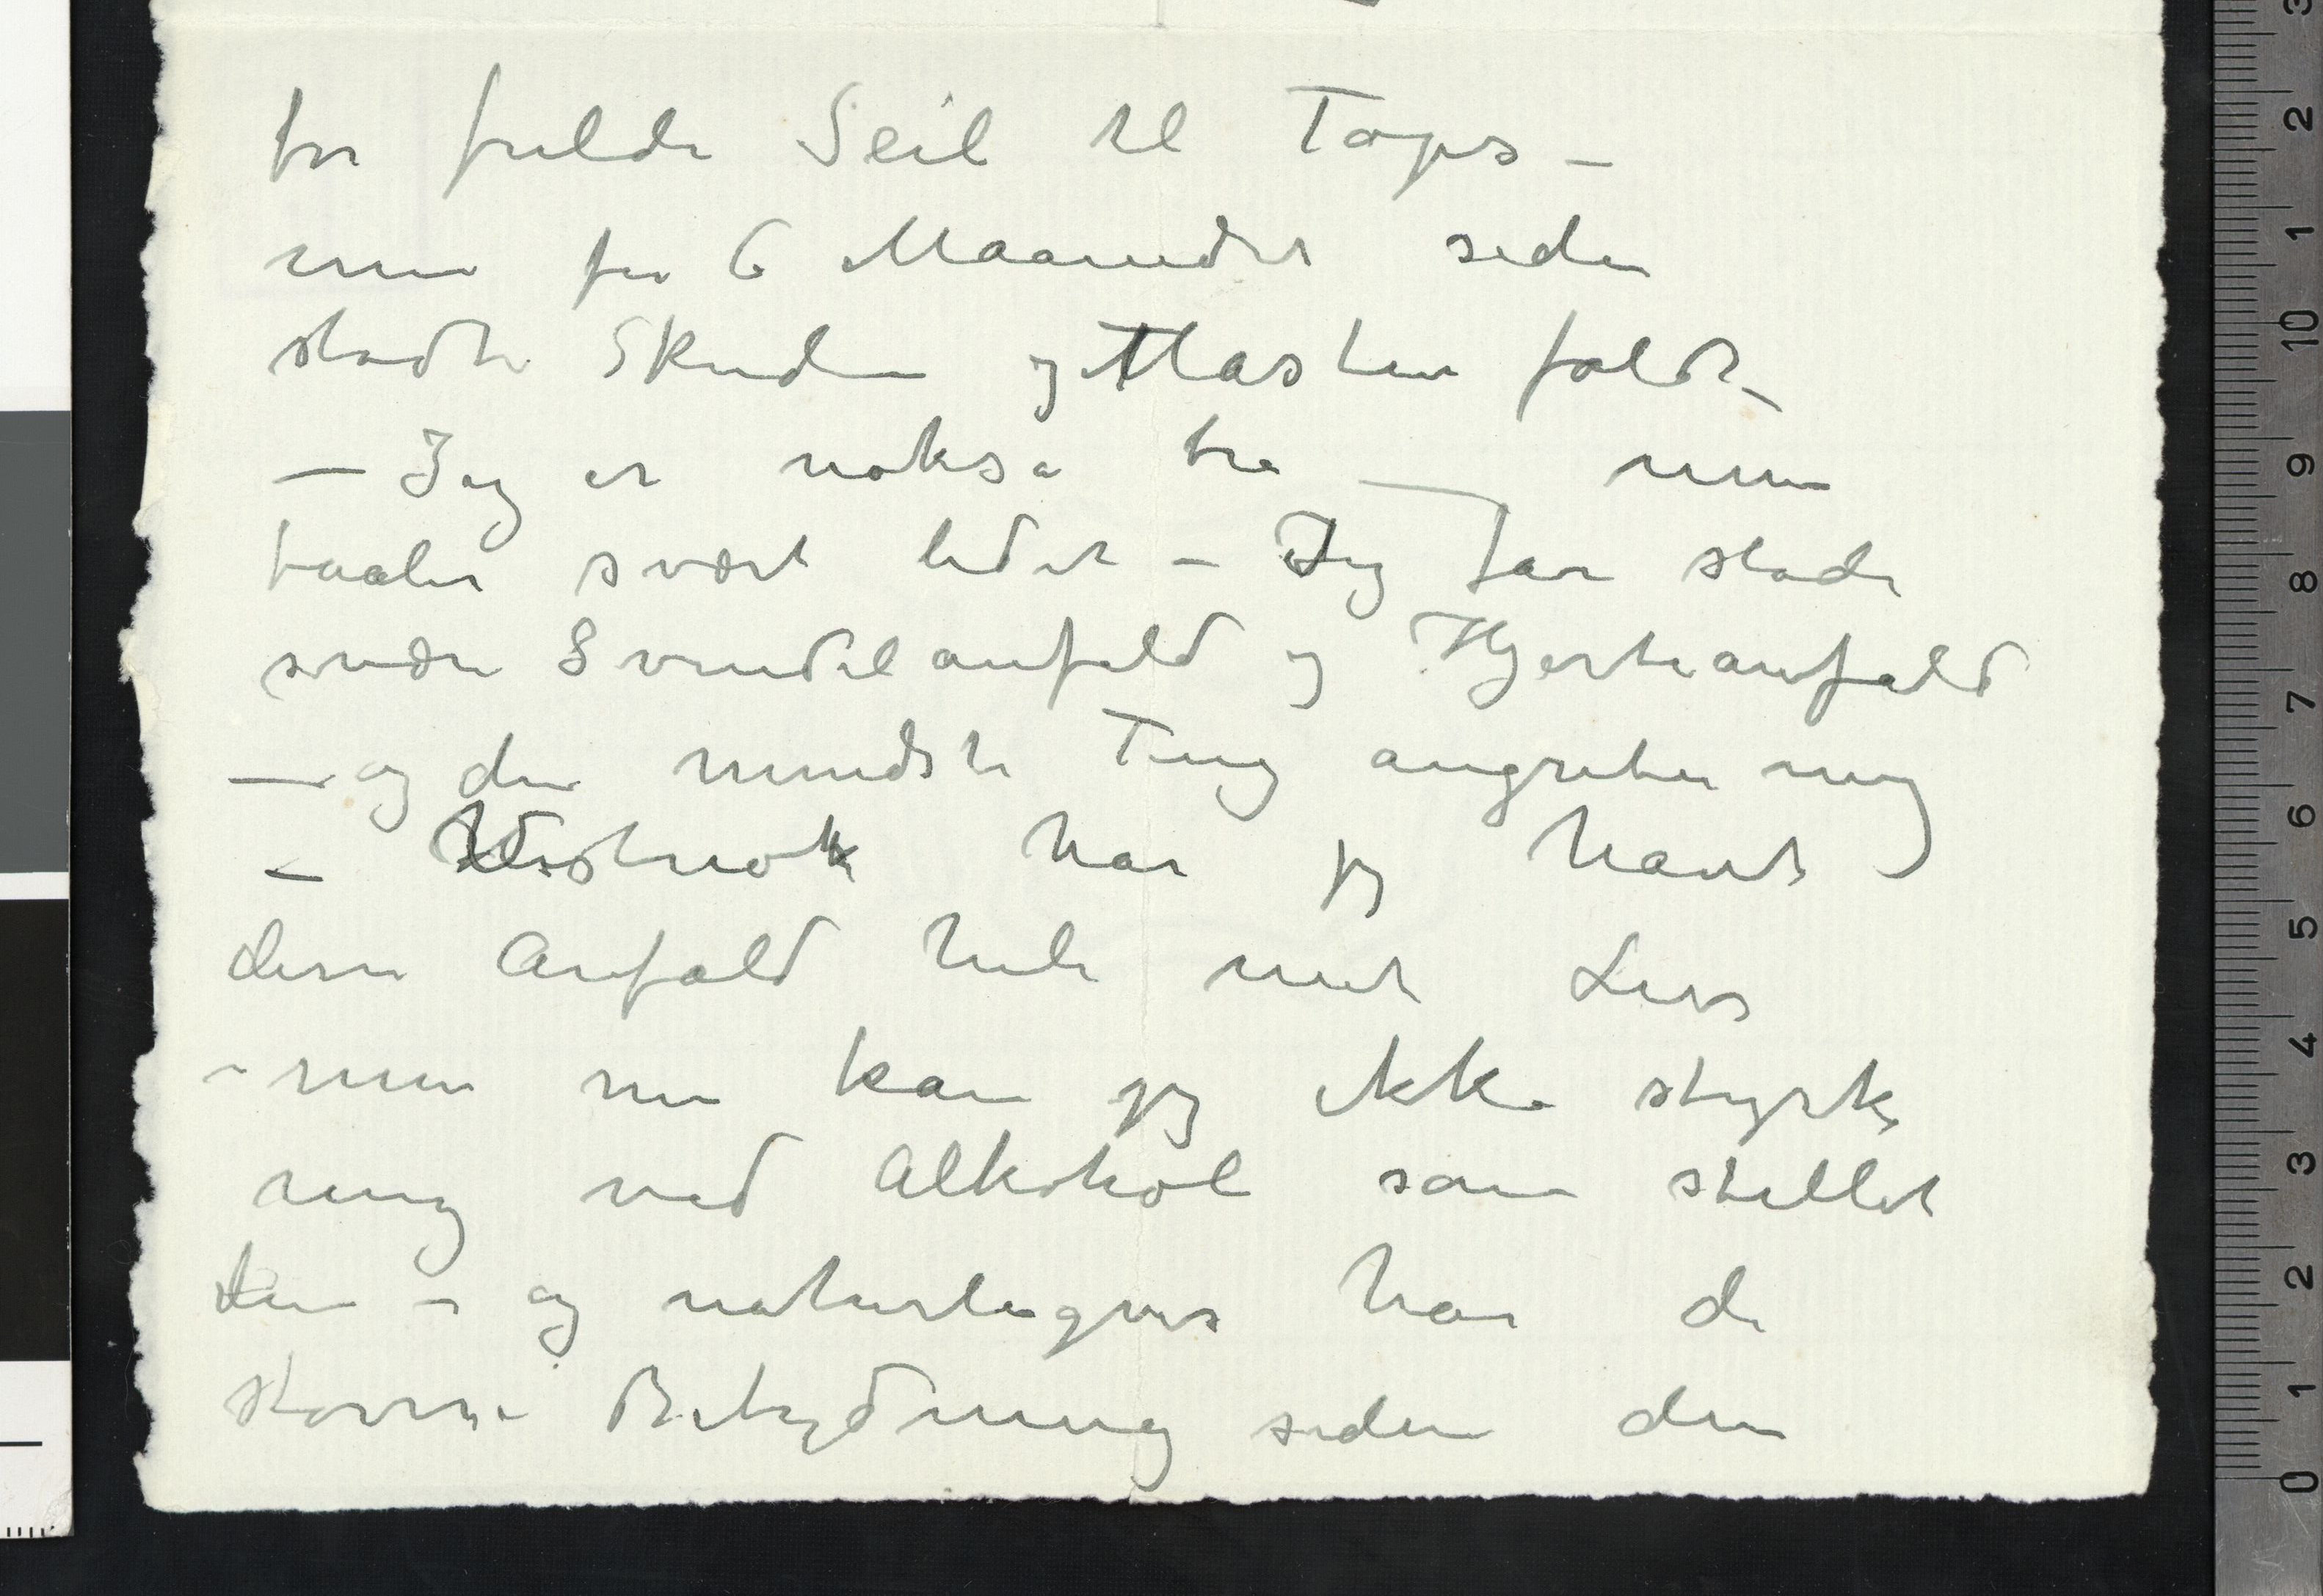 for fulde Seil til Tops –
men for 6 Maaneder siden
stødte Skuden og Masten faldt –
– Jeg er noksa bra – men
taaler svært lidet – Jeg faar stadi
svære Svindelanfald og Hjerteanfald
– og den mindste Ting angriber mig
– Vistnok har jeg havt
disse Anfald hele mit Livs
– men nu kan jeg ikke styrke
mig ved Alkohol som stillet
dem – og naturligvis har de
større Betydning siden den